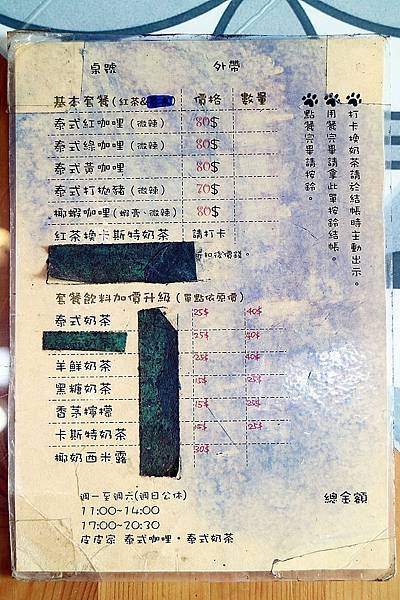 桌號 外帶
基本套餐(紅茶& 價格 數量
泰式紅咖哩(微辣) 80$
泰式綠咖哩(微辣) 80$
泰式黃咖哩 80$
泰式打拋豬(微辣) 70$
椰蝦咖哩(蝦膏、微辣) 80$
紅茶換卡斯特奶茶 請打卡
折扣後價錢。
套餐飲料加價升級(單點依原價)
泰式奶茶 25$ 40$
25$ 40$
羊鮮奶茶 25$ 40$
黑糖奶茶 15$ 25$
香茅檸檬 15$ 25$
卡斯特奶茶 15$ 25$
椰奶西米露 30$
打卡換奶茶請於結帳時主動出示。
用餐完畢請拿此單按鈴結帳。
點餐完畢請按鈴。
週一至週六(週日公休) 總金額
11:00~14:00
17:00~20:30
皮皮家 泰式咖哩·泰式奶茶